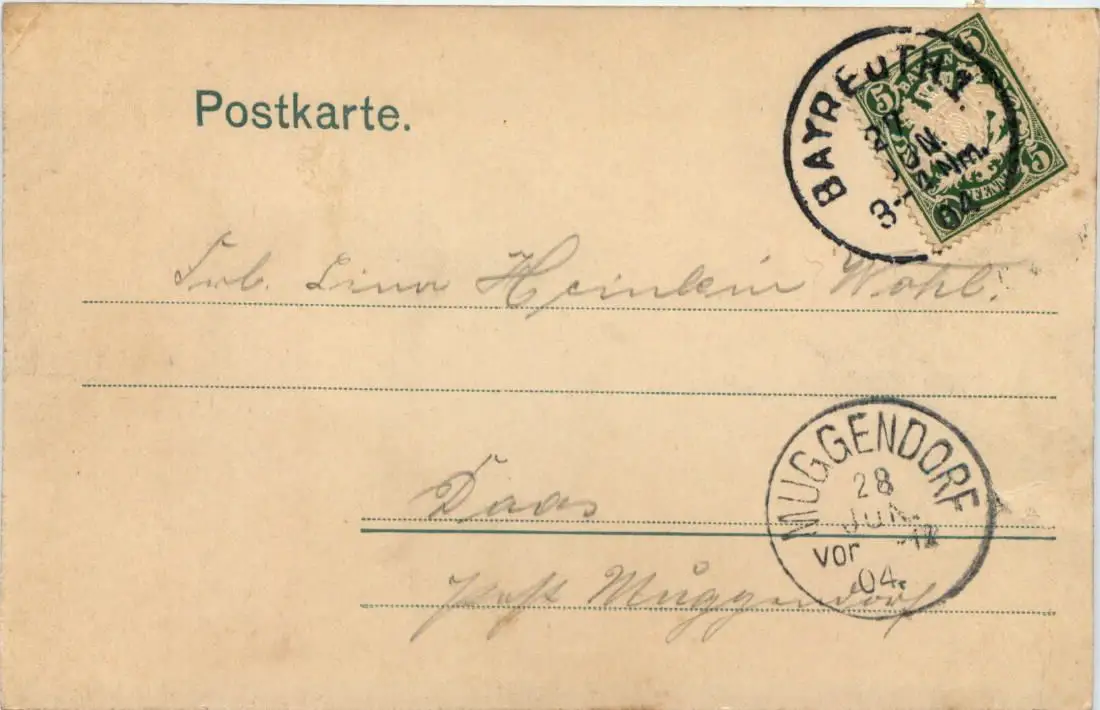 Postkarte.
BAYREUTH 1.
27
JUN.
3-4 Nm.
04
5 5 5
BAYERN
Lina Heinlein Wohl.
Daas
Post Muggendorf
MUGGENDORF
28
JUN.
vor -12
04.